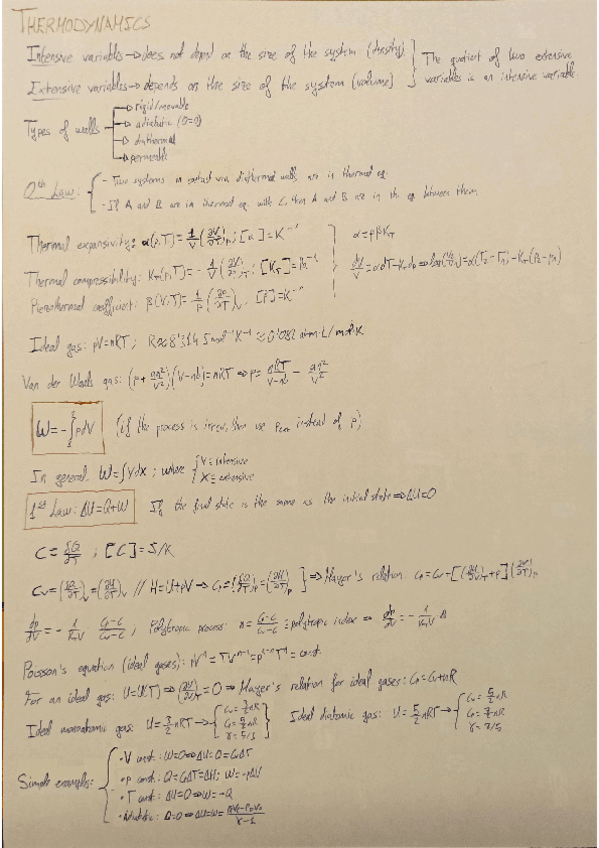 THERMODYNAMICS
Intensive variables → does not depend on the size of the system (density)
Extensive variables → depends on the size of the system (volume)
The quotient of two extensive
variables is an intensive variable.
Types of walls
→ rigid/movable
→ adiabatic (Q=0)
→ diathermal
→ permeable
0th Law:
- Two systems in contact via diathermal walls are in thermal eq.
- If A and B are in thermal eq. with C, then A and B are in th. eq. between them
Thermal expansivity: α(p,T) = 1/V (∂V/∂T)p ; [α] = K⁻¹
Thermal compressibility: K_T(p,T) = -1/V (∂V/∂p)T ; [K_T] = Pa⁻¹
Piezothermal coefficient: β(V,T) = 1/p (∂p/∂T)V ; [β] = K⁻¹
α = pβK_T
dV/V = αdT - K_T dp ⇒ log(V₂/V₁) = α(T₂-T₁) - K_T(p₂-p₁)
Ideal gas: pV = nRT ; R ≈ 8'314 J mol⁻¹ K⁻¹ ≈ 0'082 atm·L/mol·K
Van der Waals gas: (p + an²/V²)(V-nb) = nRT ⇒ p = nRT/(V-nb) - an²/V²
W = -∫₁² p dV (if the process is irrev., then use p_ext instead of p)
In general, W = ∫Y dX ; where
Y ≡ intensive
X ≡ extensive
1st Law: ΔU = Q+W If the final state is the same as the initial state ⇒ ΔU=0
C ≡ δQ/∂T ; [C] = J/K
C_V = (δQ/∂T)V = (∂U/∂T)V // H = U+pV → C_p = (δQ/∂T)p = (∂H/∂T)p ] ⇒ Mayer's relation C_p = C_V - [(∂U/∂V)T + p](∂V/∂T)p
dp/dV = - 1/(K_T V) (C_p-C)/(C_V-C) ; Polytropic process: n = (C_p-C)/(C_V-C) ≡ polytropic index ⇒ dp/dV = - 1/(K_T V) n
Poisson's equation (ideal gases): pVⁿ = TVⁿ⁻¹ = p¹⁻ⁿTⁿ = const.
For an ideal gas: U = U(T) ⇒ (∂U/∂V)T = 0 ⇒ Mayer's relation for ideal gases: C_p = C_V + nR
Ideal monoatomic gas: U = 3/2 nRT →
C_V = 3/2 nR
C_p = 5/2 nR
γ = 5/3
Ideal diatomic gas: U = 5/2 nRT →
C_V = 5/2 nR
C_p = 7/2 nR
γ = 7/5
Simple examples:
· V const.: W=0 ⇒ ΔU = Q = C_V ΔT
· p const.: Q = C_p ΔT = ΔH ; W = -pΔV
· T const.: ΔU=0 ⇒ W = -Q
· Adiabatic: Q=0 ⇒ ΔU = W =